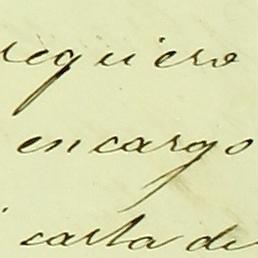 requiero
encargo
carta de